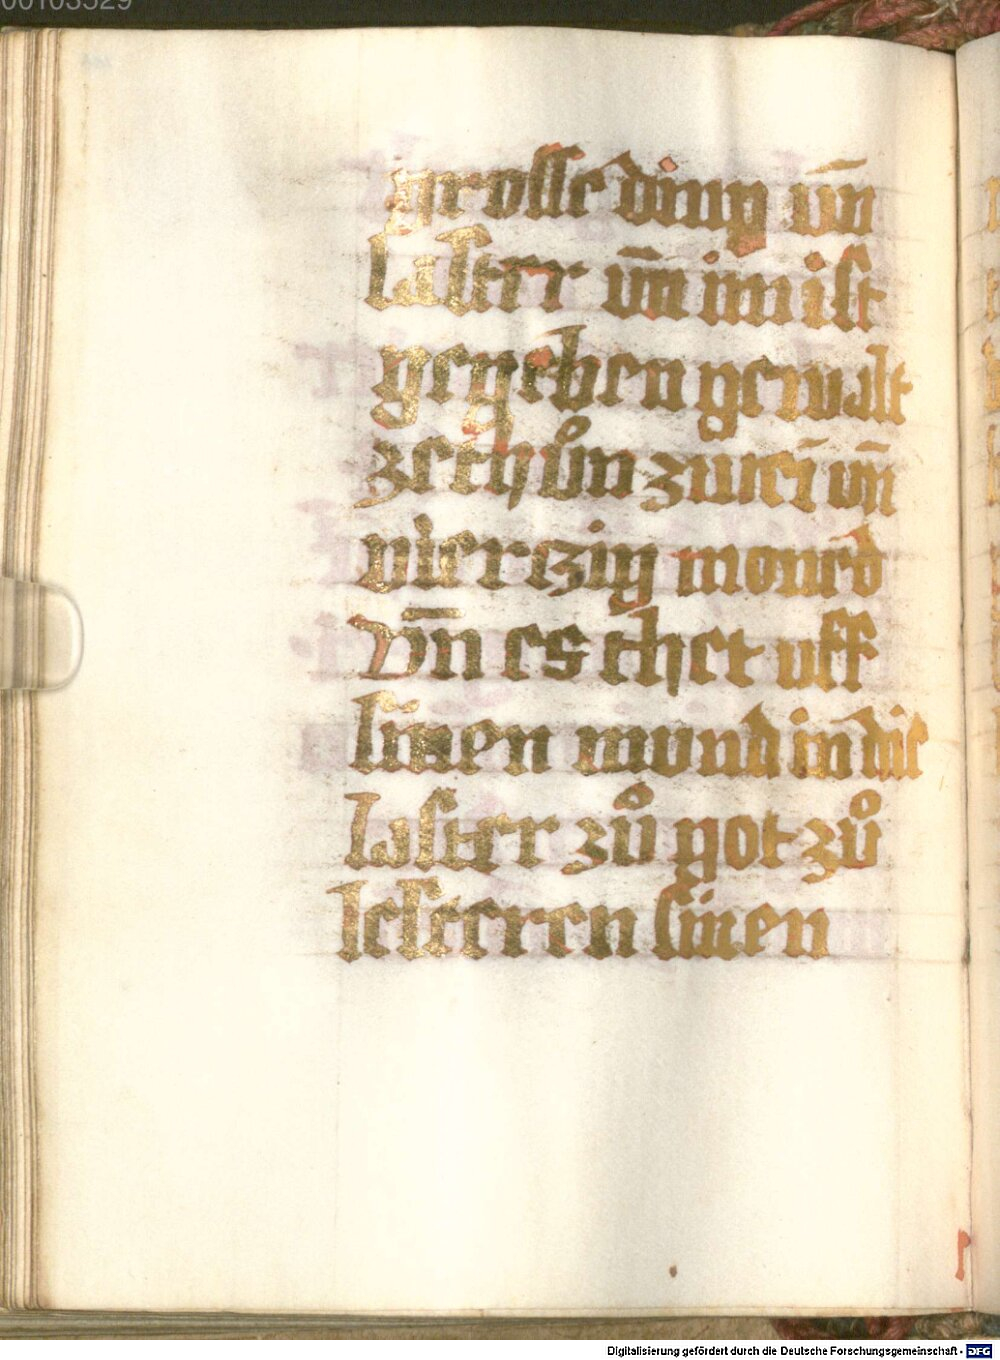 00103529
grosse ding vn̄
laster vn̄ im ist
gegeben gewalt
zethůn zwei vn̄
vierczig moned
Vn̄ es thet uff
sinen mund in die
laster zů got zů
lesteren sinen
Digitalisierung gefördert durch die Deutsche Forschungsgemeinschaft - DFG